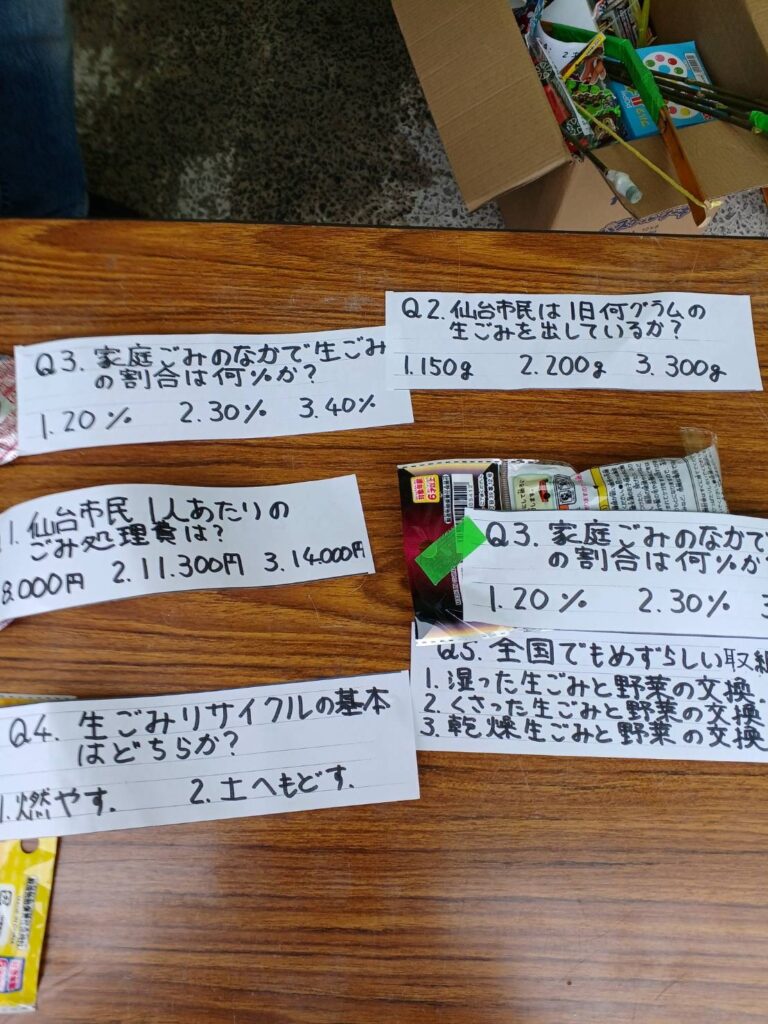 Q2. 仙台市民は1日何グラムの
生ごみを出しているか?
1.150g 2.200g 3.300g
Q3. 家庭ごみのなかで生ごみ
の割合は何%か?
1.20% 2.30% 3.40%
1. 仙台市民 1人あたりの
ごみ処理費は?
8.000円 2.11.300円 3.14.000円
Q3. 家庭ごみのなかで
の割合は何%か
1.20% 2.30% 3
Q5. 全国でもめずらしい取組
1. 湿った生ごみと野菜の交換
2. くさった生ごみと野菜の交換
3. 乾燥生ごみと野菜の交換
Q4. 生ごみリサイクルの基本
はどちらか?
1. 燃やす. 2. 土へもどす.